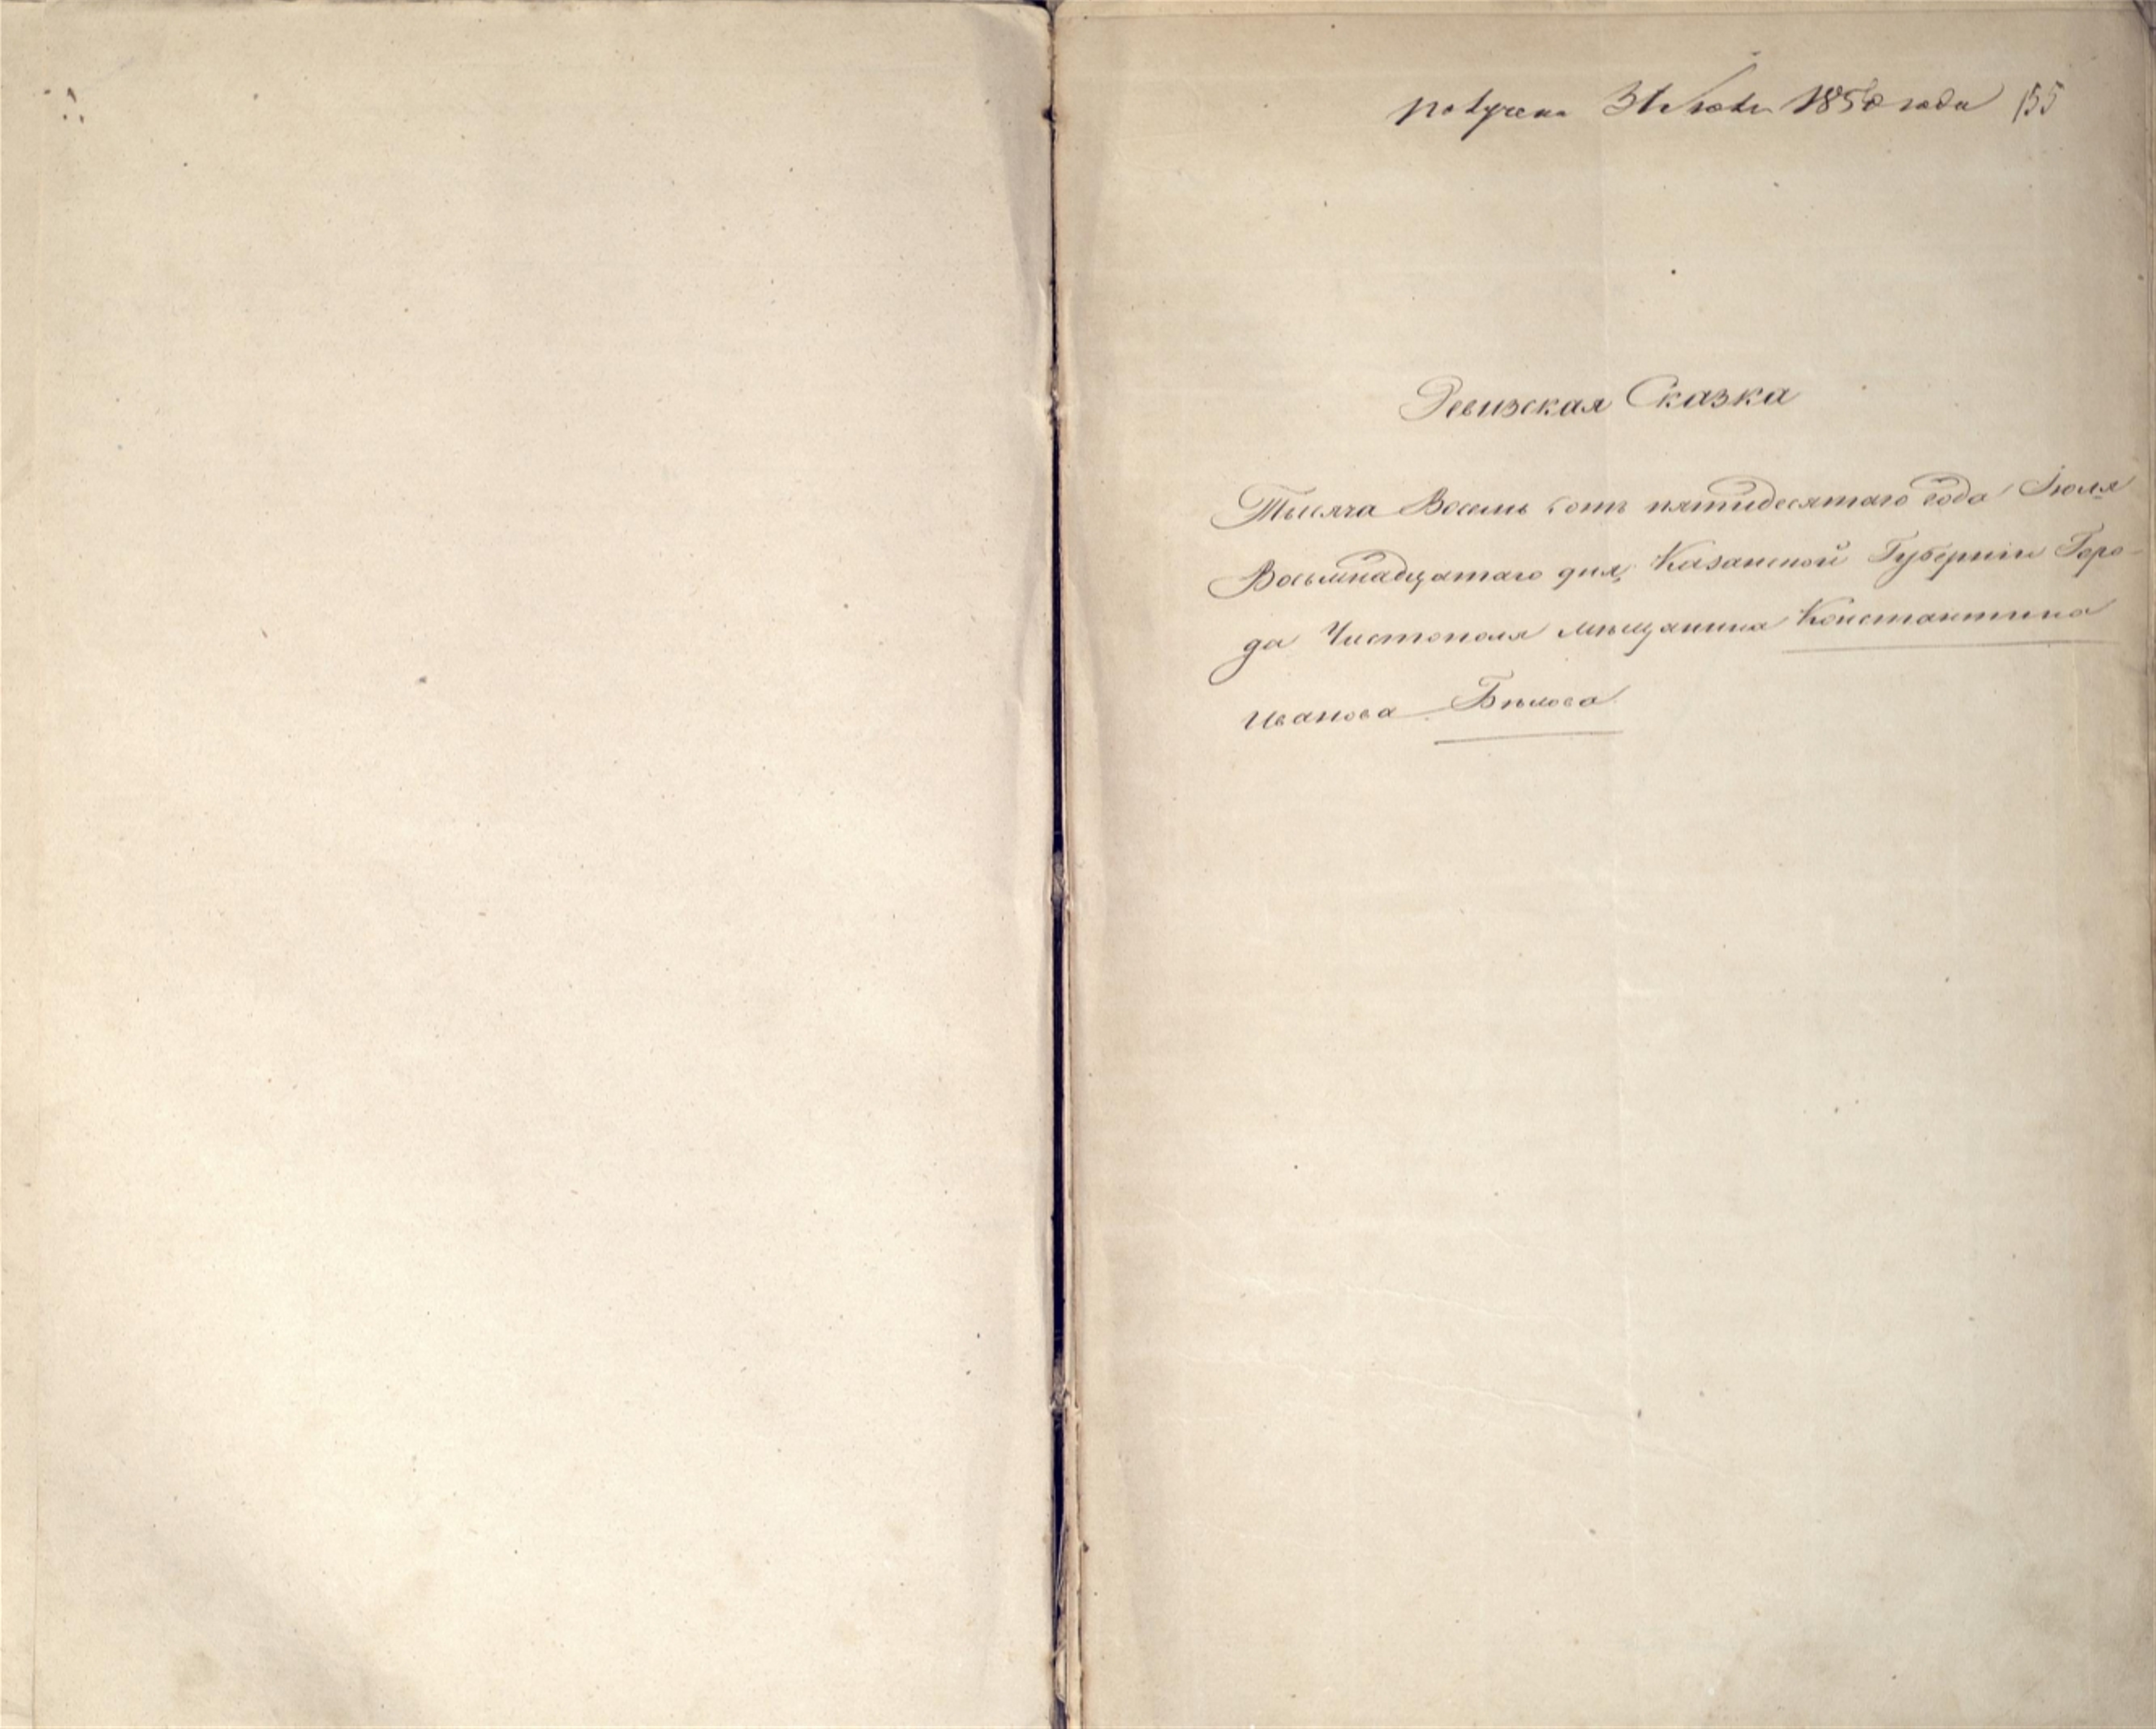 получена 31 Июля 1850 года 155
Ревизская Сказка
Тысяча Восемь сотъ пятидесятаго года Іюля
Восьмнадцатаго дня, Казанской Губерніи Горо-
да Чистополя мѣщанина Константина
Иванова Бѣлова